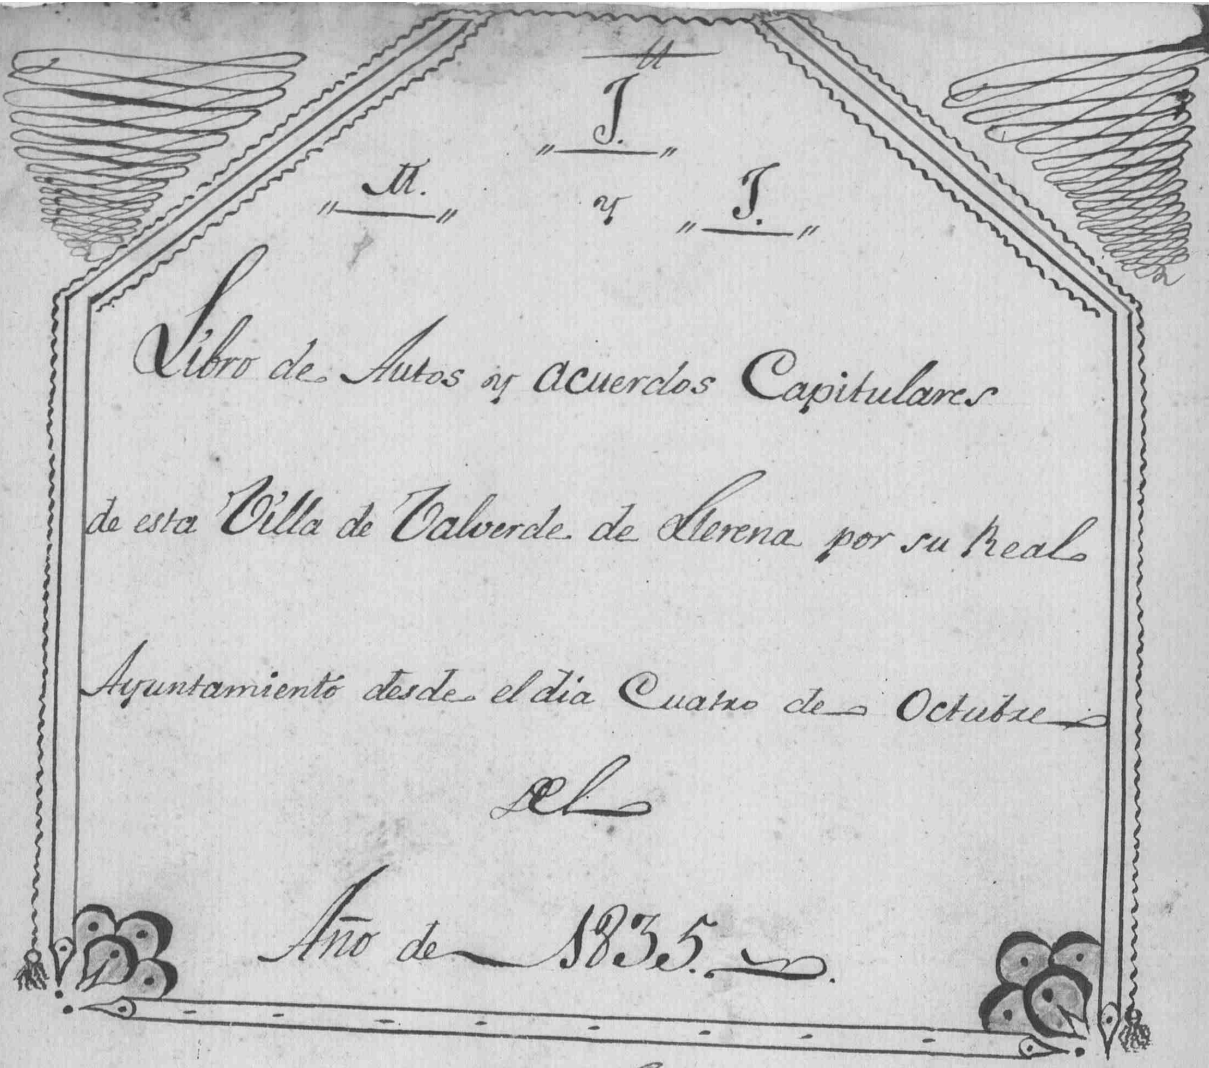 J.
M. y J.
Libro de Autos y acuerdos Capitulares
de esta Villa de Valverde de Llerena por su Real
Ayuntamiento desde el dia Cuatro de Octubre
del
Año de 1835.